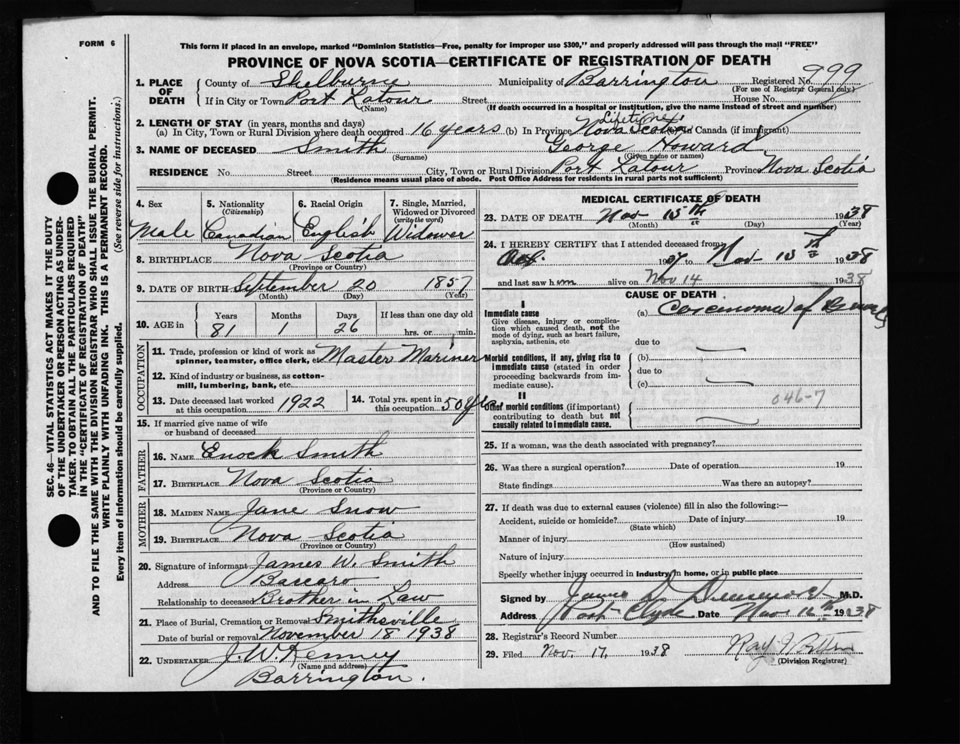 FORM 6
This form if placed in an envelope, marked "Dominion Statistics—Free, penalty for improper use $300," and properly addressed will pass through the mail "FREE"
PROVINCE OF NOVA SCOTIA—CERTIFICATE OF REGISTRATION OF DEATH
SEC. 46—VITAL STATISTICS ACT MAKES IT THE DUTY
OF THE UNDERTAKER OR PERSON ACTING AS UNDER-
TAKER, TO OBTAIN ALL THE PARTICULARS REQUIRED
IN THE "CERTIFICATE OF REGISTRATION OF DEATH"
AND TO FILE THE SAME WITH THE DIVISION REGISTRAR WHO SHALL ISSUE THE BURIAL PERMIT.
WRITE PLAINLY WITH UNFADING INK. THIS IS A PERMANENT RECORD.
Every item of information should be carefully supplied. (See reverse side for instructions.)
1. PLACE OF DEATH County of Shelburne Municipality of Barrington Registered No. 999
(For use of Registrar General only)
If in City or Town Port Latour Street House No.
(Name) (If death occurred in a hospital or institution, give the name instead of street and number)
2. LENGTH OF STAY (in years, months and days)
(a) In City, Town or Rural Division where death occurred 16 years (b) In Province Lifetime Nova Scotia in Canada (if immigrant)
3. NAME OF DECEASED Smith George Howard
(Surname) (Given name or names)
RESIDENCE No. Street City, Town or Rural Division Port Latour Province Nova Scotia
(Residence means usual place of abode. Post Office Address for residents in rural parts not sufficient)
4. Sex Male
5. Nationality (Citizenship) Canadian
6. Racial Origin English
7. Single, Married, Widowed or Divorced (write the word) Widower
8. BIRTHPLACE Nova Scotia
(Province or Country)
9. DATE OF BIRTH September 20 1857
(Month) (Day) (Year)
10. AGE in Years Months Days If less than one day
81 1 26 hrs. or min.
OCCUPATION
11. Trade, profession or kind of work as spinner, teamster, office clerk, etc. Master Mariner
12. Kind of industry or business, as cotton-mill, lumbering, bank, etc.
13. Date deceased last worked at this occupation 1922
14. Total yrs. spent in this occupation 50 yrs
15. If married give name of wife or husband of deceased
FATHER
16. NAME Enock Smith
17. BIRTHPLACE Nova Scotia
(Province or Country)
MOTHER
18. MAIDEN NAME Jane Snow
19. BIRTHPLACE Nova Scotia
(Province or Country)
20. Signature of informant James W. Smith
Address Baccaro
Relationship to deceased Brother in Law
21. Place of Burial, Cremation or Removal Smithsville
Date of burial or removal November 18 1938
22. UNDERTAKER J. W. Kenney
(Name and address)
Barrington.
MEDICAL CERTIFICATE OF DEATH
23. DATE OF DEATH Nov 15th 1938
(Month) (Day) (Year)
24. I HEREBY CERTIFY that I attended deceased from
19 Nov 15th 1938
and last saw him alive on Nov 14 1938
CAUSE OF DEATH
I
Immediate cause
Give disease, injury or complication which caused death, not the mode of dying, such as heart failure, asphyxia, asthenia, etc
(a) Carcinoma of Bowels
due to
Morbid conditions, if any, giving rise to immediate cause (stated in order proceeding backwards from immediate cause).
(b)
due to
(c)
046-7
II
Other morbid conditions (if important) contributing to death but not causally related to immediate cause.
25. If a woman, was the death associated with pregnancy?
26. Was there a surgical operation? Date of operation 19
State findings Was there an autopsy?
27. If death was due to external causes (violence) fill in also the following:—
Accident, suicide or homicide? Date of injury 19
(State which)
Manner of injury
(How sustained)
Nature of injury
Specify whether injury occurred in industry, in home, or in public place
Signed by James M.D.
Address Port Clyde Date Nov 16th 1938
28. Registrar's Record Number
29. Filed Nov. 17, 1938
(Division Registrar)